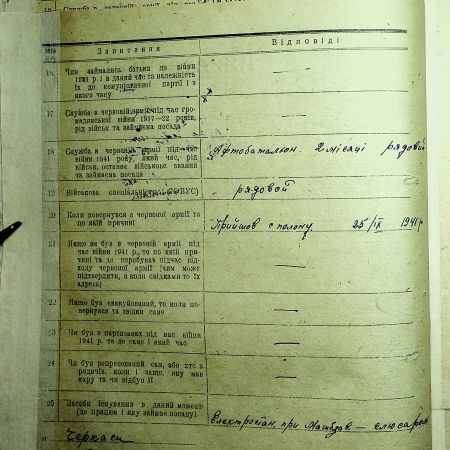 №№
Запитання
Відповіді
16
Чим займались батьки до війни
1941 р. і в даний час та належність
їх до комуністичної партії і з
якого часу
—
17
Служба в червоній армії під час гро-
мадянської війни 1917—22 років,
рід військ та займана посада
—
18
Служба в червоній армії під час
війни 1941 року, який час, рід
військ, останнє військове звання
та займана посада
Автобатальон. 2 місяці рядовий
19
Військова спеціальність (ВУС)
рядовой
20
Коли повернувся з червоної армії та
по якій причині
Прийшов с полону. 25/IX 1941 р
21
Якщо не був в червоній армії під
час війни 1941 р., то по якій при-
чині та де перебував під час від-
ходу червоної армії (чим може
підтвердити, з коли свідками то їх
адреса)
—
22
Якщо був евакуйований, то коли по-
вернувся та звідки саме
—
23
Чи був в партизанах під час війни
1941 р. та де саме і який час
—
24
Чи був репресований сам, або хто з
родичів, коли і защо, яку мав
кару та чи відбув її
—
25
Засоби існування в даний момент
(де працює і яку займає посаду)
при Машбуд — слюсарем
м
Черкаси